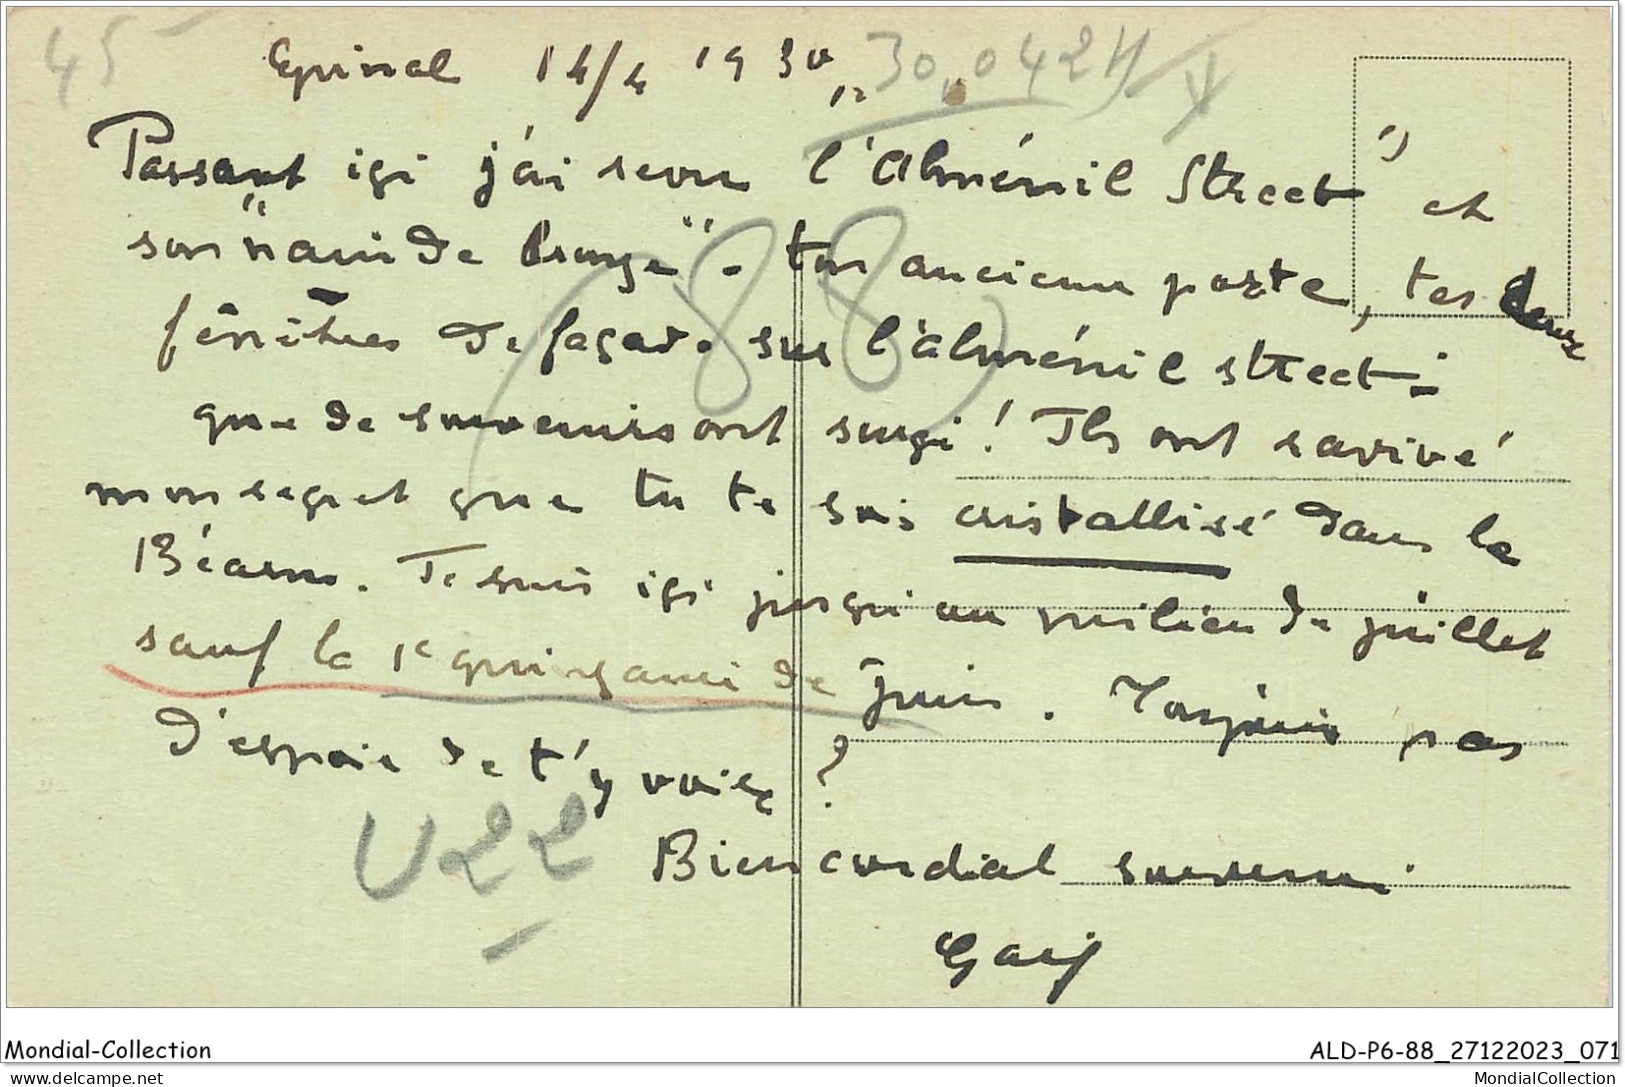 45
Epinal 14/4 1930
30,042
Passant ici j'ai revu "l'Alménil Street" et
son "nain de " . ton ancienne porte, tes deux
fenêtres de façade sur l'alménil street ;
que de souvenirs ont surgi ! Ils ont ravivé
mon regret que tu te sois cristallisé dans le
Béarn. Je suis ici jusqu'au milieu de juillet
sauf la 1e quinzaine de juin. Toujours pas
d'espoir de t'y voir ?
(88)
U22
Bien cordial souvenir
Mondial-Collection
ALD-P6-88_27122023_071
www.delcampe.net
MondialCollection